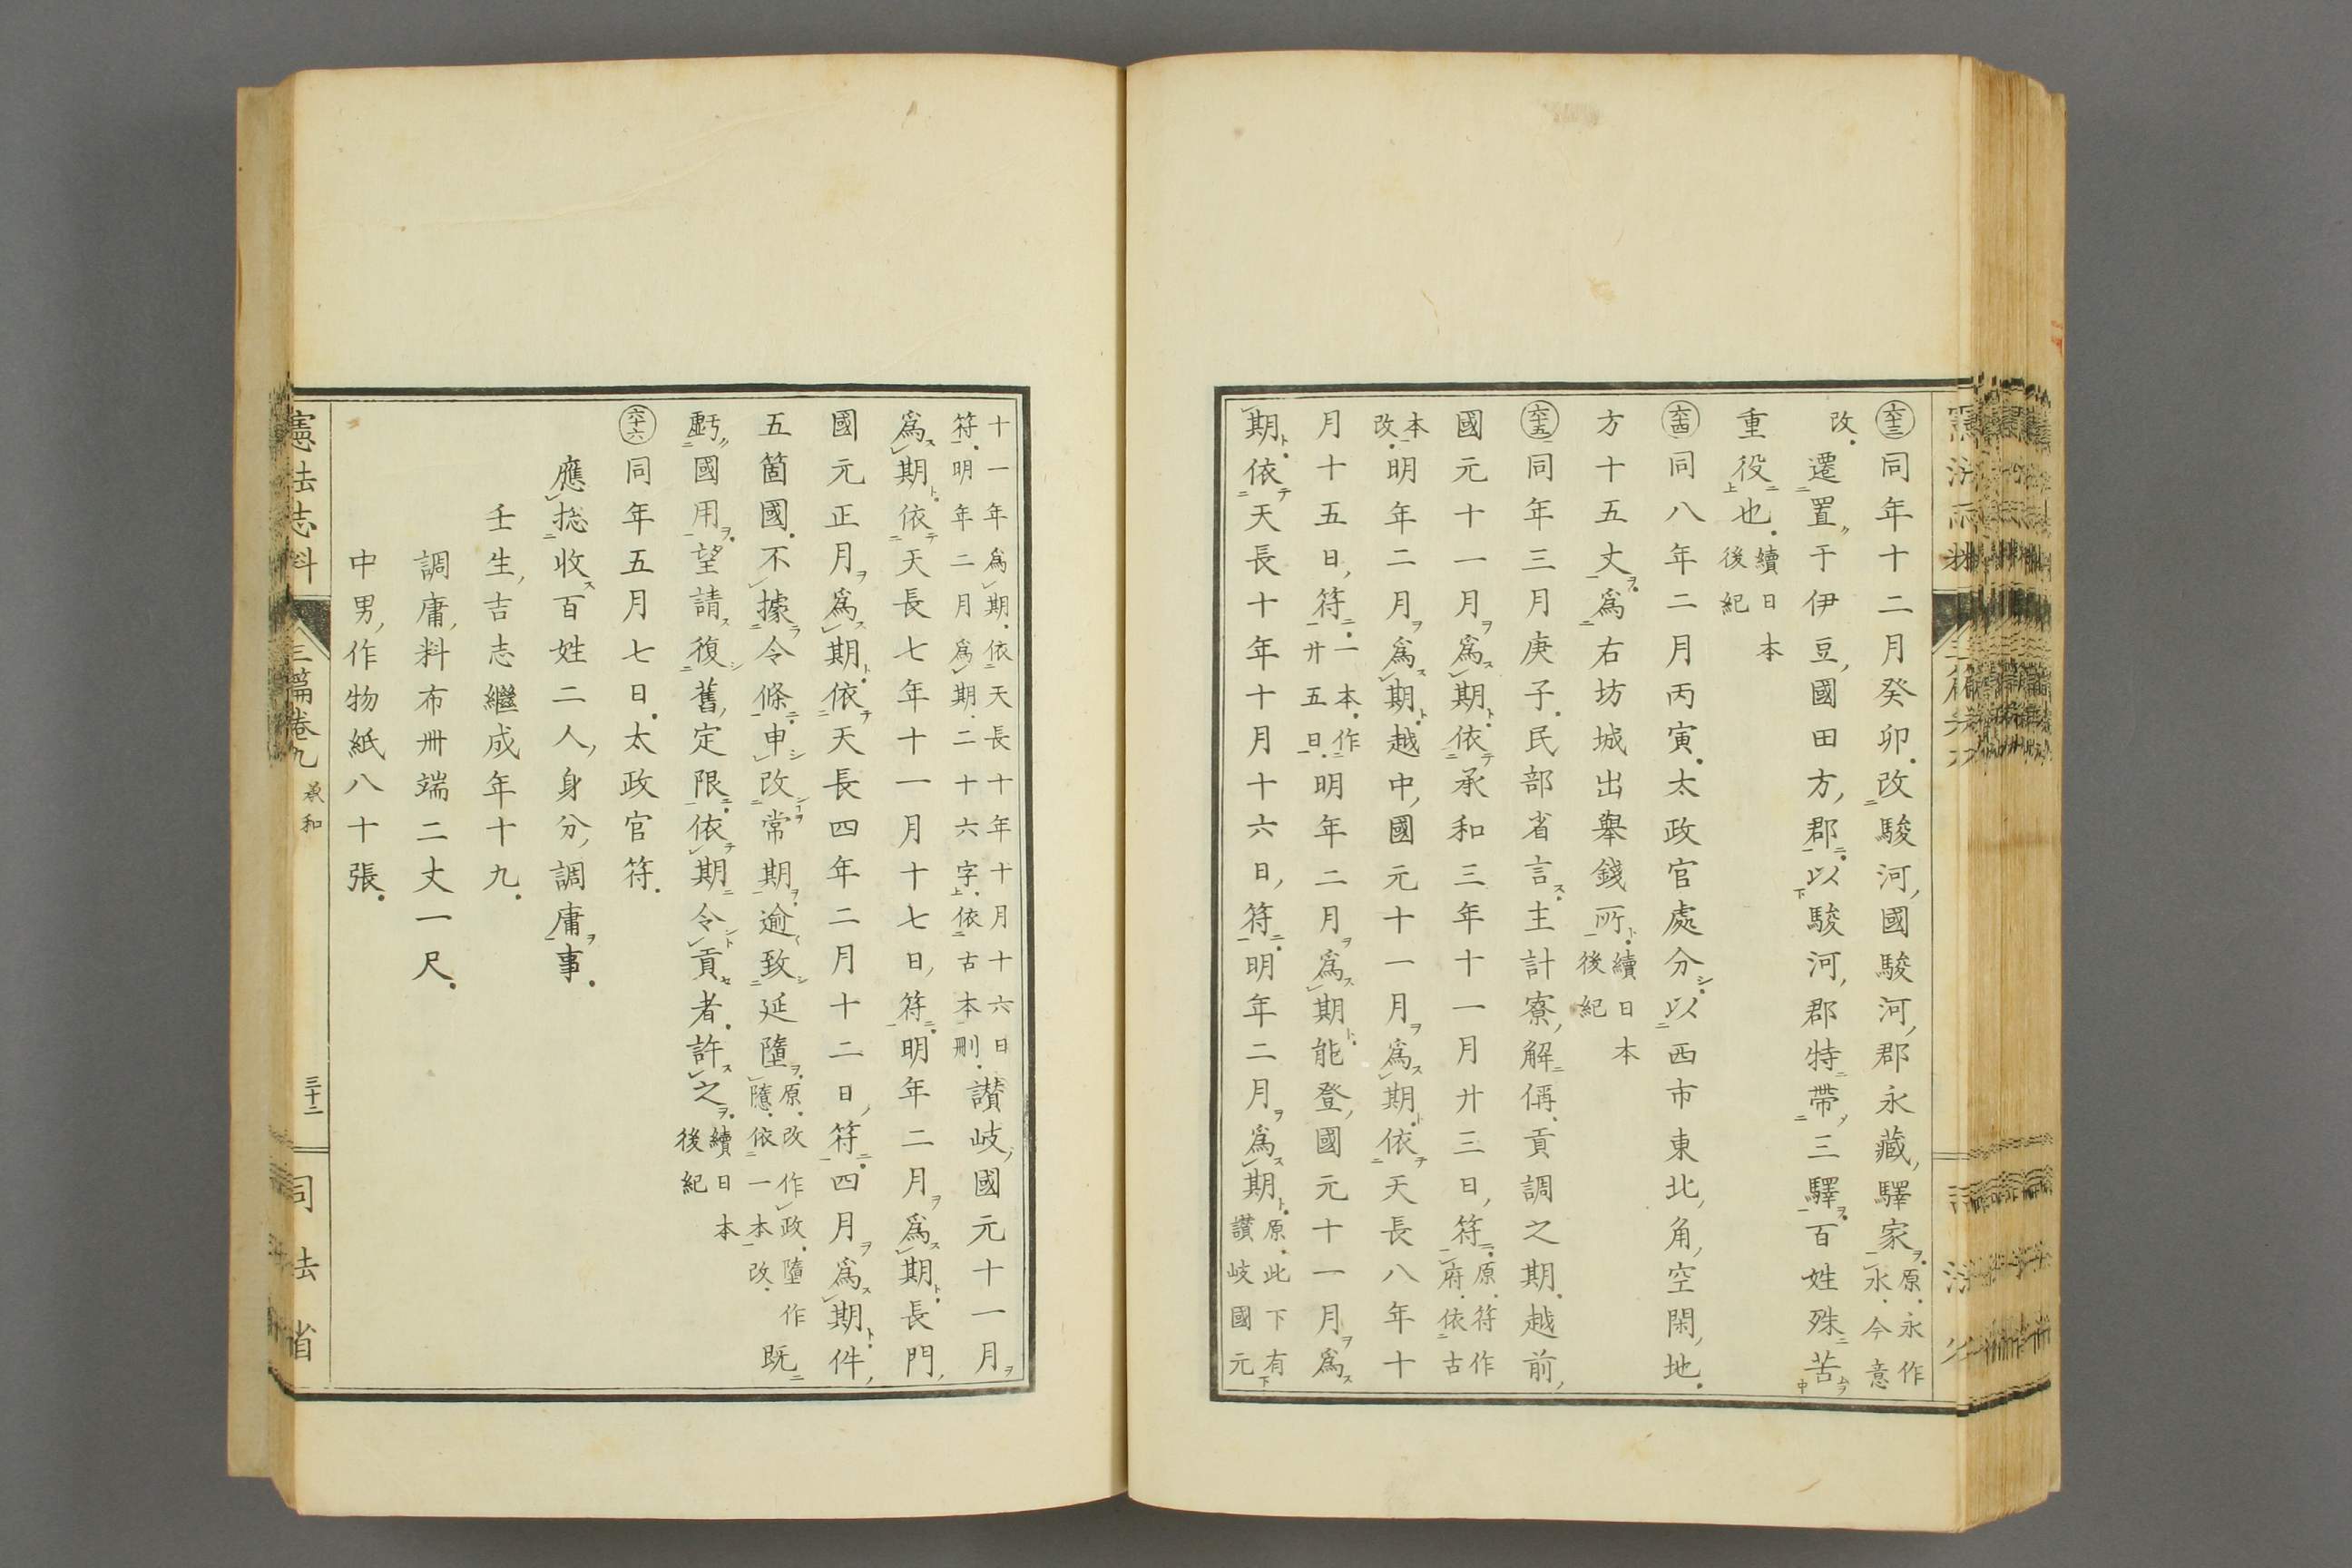 六十三同年十二月癸卯。改駿河國駿河郡永藏驛家。原。永作水。今意
改。遷置于伊豆國田方郡。以駿河郡特帶三驛。百姓殊苦
重役也。續日本後紀
六十四同八年二月丙寅。太政官處分。以西市東北角空閑地。
方十五丈。爲右坊城出擧錢所。續日本後紀
六十五同年三月庚子。民部省言。主計寮解偁。貢調之期。越前
國元十一月爲期。依承和三年十一月廿三日符。原。符作府。依古
本改。明年二月爲期。越中國元十一月爲期。依天長八年十
月十五日符。一本。作廿五日。明年二月爲期。能登國元十一月爲
期。依天長十年十月十六日符。明年二月爲期。原。此下有讃岐國元
十一年爲期。依天長十年十月十六日符。明年二月爲期。二十六字。依古本刪。讃岐國元十一月
爲期。依天長七年十一月十七日符。明年二月爲期。長門
國元正月爲期。依天長四年二月十二日符。四月爲期。件
五箇國。不據令條。申改常期。逾致延墮。原。改作政。墮作隱。依一本改。既
虧國用。望請復舊定限。依期令貢者。許之。續日本後紀
六十六同年五月七日。太政官符。
應捴收百姓二人身分調庸事。
壬生吉志繼成年十九。
調庸料布卌端二丈一尺。
中男作物紙八十張。
憲法志料 三篇卷九 承和 三十二 司法省